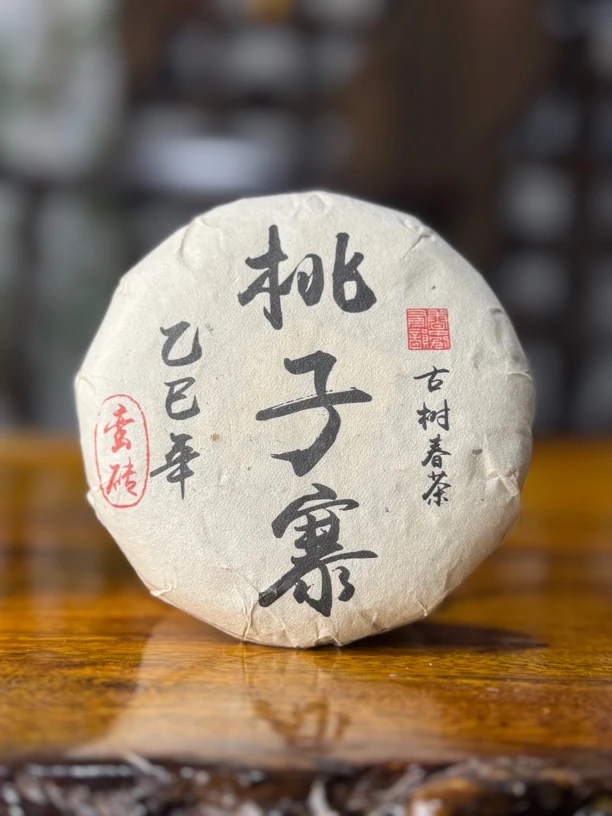 古树春茶
桃子寨
乙巳年
蛮砖